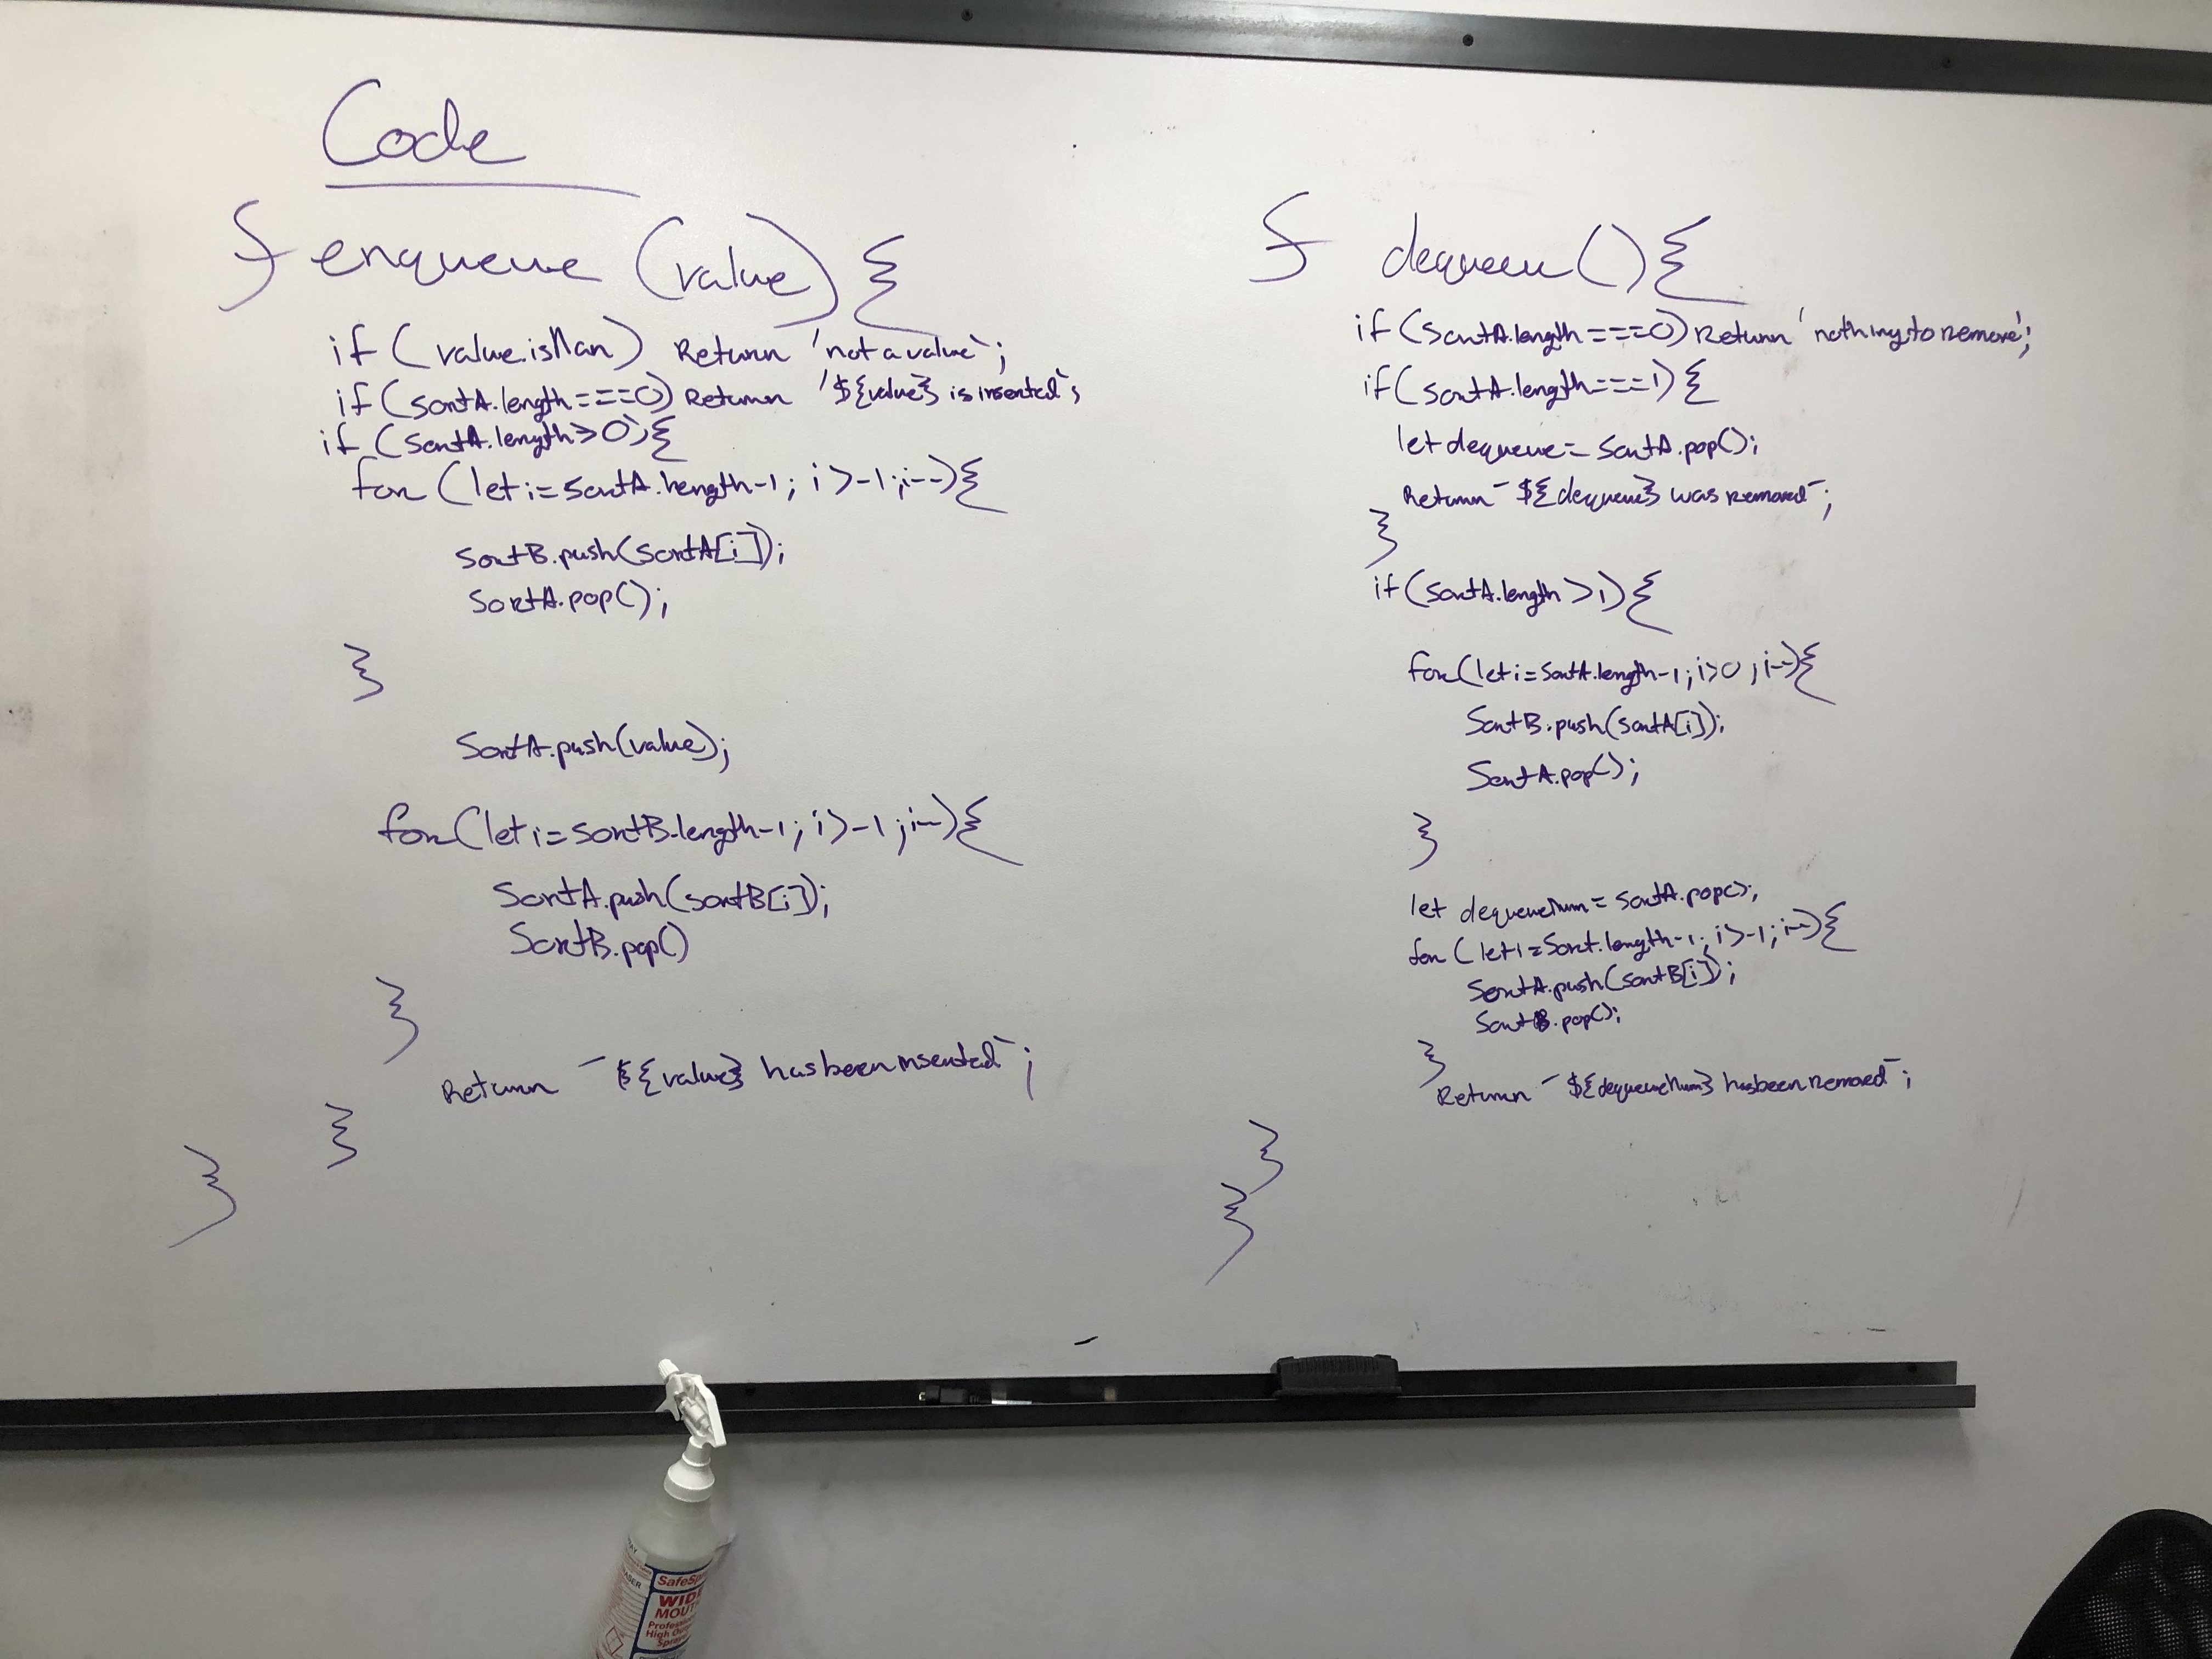 Code
f enqueue (value) {
if (value.isNan) Return 'not a value`;
if (sortA.length===0) Return '${value} is inserted`;
if (sortA.length>0){
for (let i=sortA.length-1; i>-1;i--){
sortB.push(sortA[i]);
sortA.pop();
}
sortA.push(value);
for(let i=sortB.length-1; i>-1;i--){
sortA.push(sortB[i]);
sortB.pop()
}
Return `${value} has been inserted`;
}
}
f dequeue(){
if (sortA.length===0) Return 'nothing to remove';
if(sortA.length===1){
let dequeue=sortA.pop();
Return `${dequeue} was removed`;
}
if(sortA.length>1){
for(let i=sortA.length-1;i>0;i--){
sortB.push(sortA[i]);
sortA.pop();
}
let dequeueNum=sortA.pop();
for(let i=sort.length-1;i>-1;i--){
sortA.push(sortB[i]);
sortB.pop();
}
Return `${dequeueNum} has been removed`;
}
}
SafeSp
WID
MOUT
Professi
High Ou
Spray